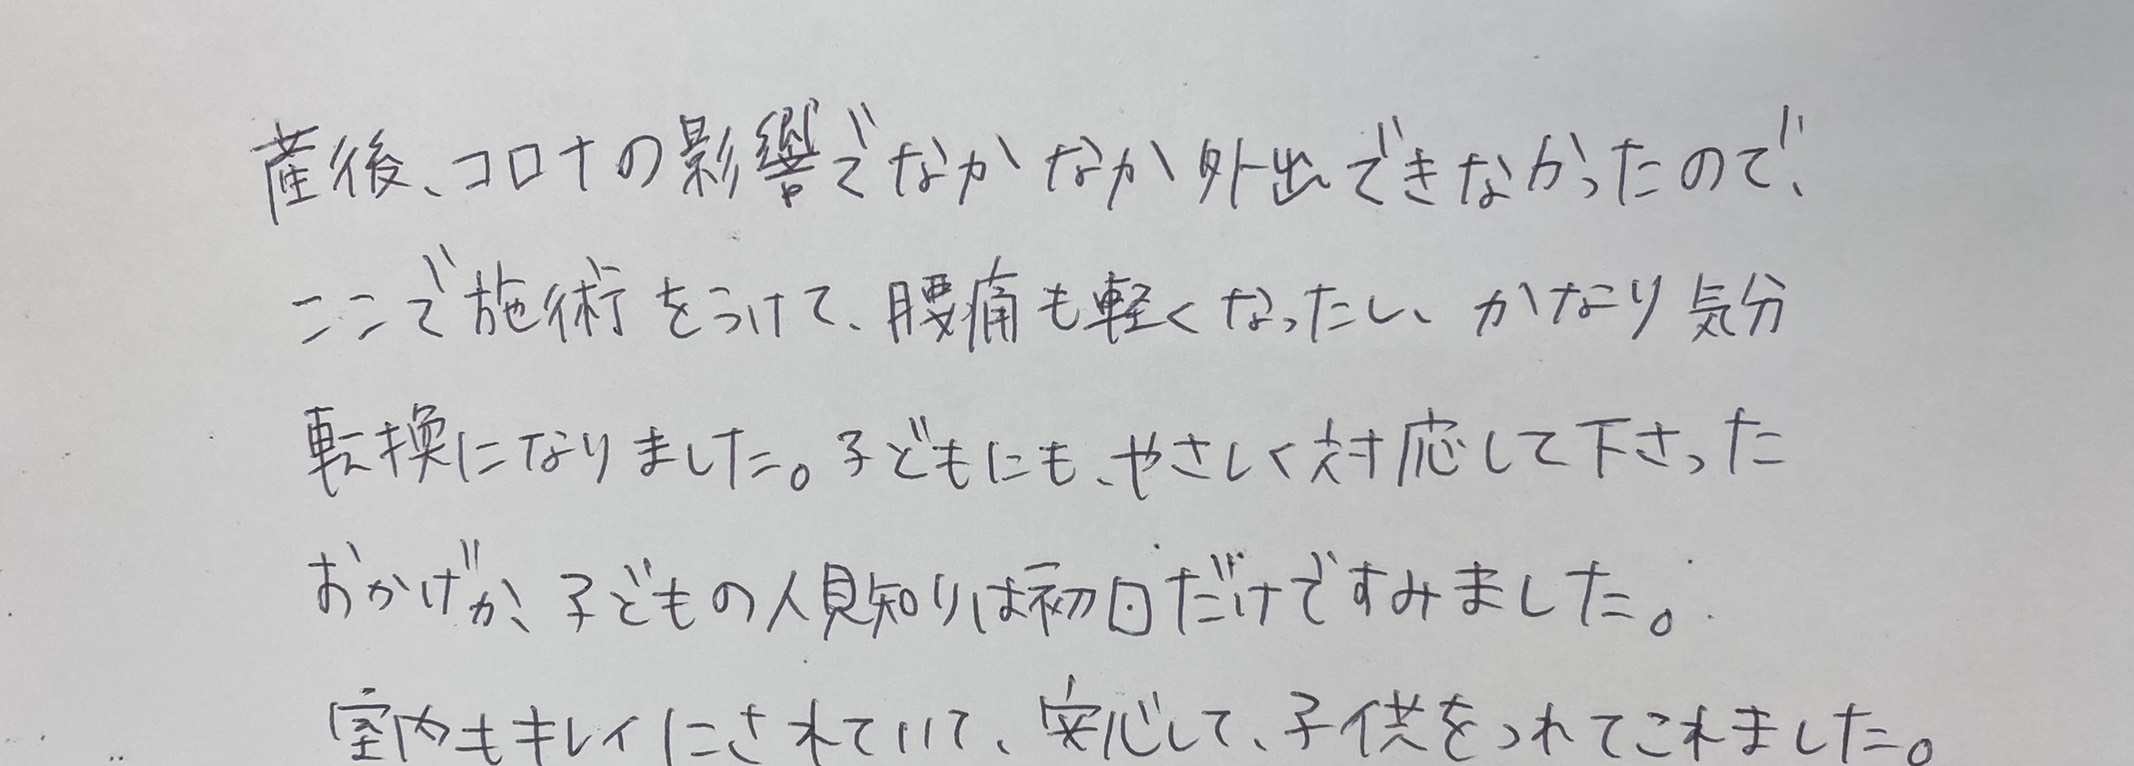 産後、コロナの影響でなかなか外出できなかったので、
ここで施術をうけて、腰痛も軽くなったし、かなり気分
転換になりました。子どもにも、やさしく対応して下さった
おかげか、子どもの人見知りは初日だけですみました。
室内もキレイにされていて、安心して、子供をつれてこれました。